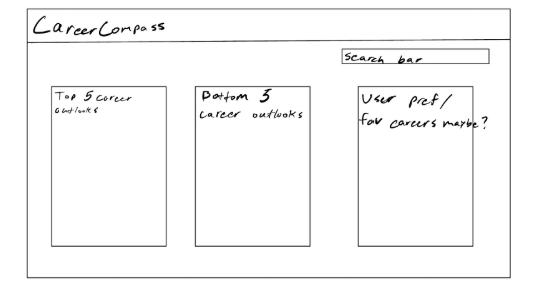 CareerCompass
Search bar
Top 5 career
outlooks
Bottom 5
career outlooks
User pref/
fav careers maybe?